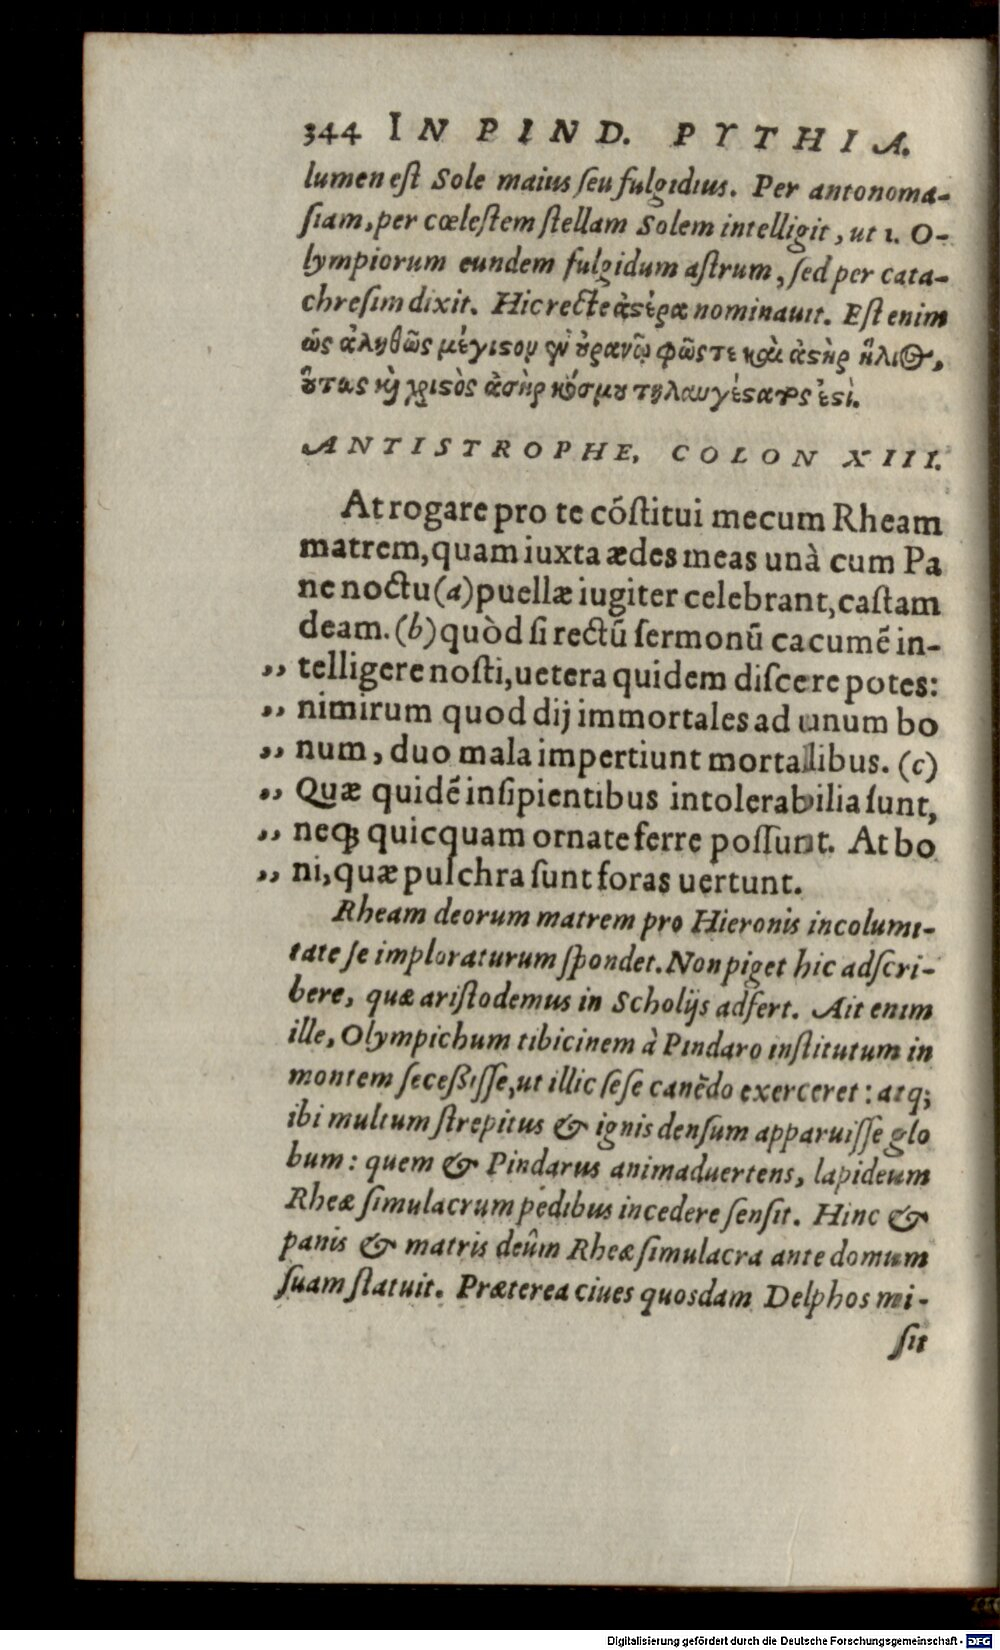 344 IN PIND. PYTHIA.
lumen est Sole maius seu fulgidius. Per antonoma-
siam, per cœlestem stellam Solem intelligit, ut 1. O-
lympiorum eundem fulgidum astrum, sed per cata-
chresim dixit. Hic recte ἀϛέρα nominauit. Est enim
ὡς ἀληθῶς μέγιϛον ἐν ȣ̓ρανῷ φῶς τε καὶ ἀϛὴρ ἥλιος,
ȣ̔́τως κὴ χριϛὸς ἀσὴρ κόσμȣ τηλαυγέϛατος ἐϛὶ.
ANTISTROPHE, COLON XIII.
At rogare pro te cōstitui mecum Rheam
matrem, quam iuxta ædes meas unà cum Pa
ne noctu (a) puellæ iugiter celebrant, castam
deam. (b) quòd si rectū sermonū cacumē in-
„ telligere nosti, uetera quidem discere potes:
„ nimirum quod dij immortales ad unum bo
„ num, duo mala impertiunt mortalibus. (c)
„ Quæ quidē insipientibus intolerabilia sunt,
„ neq; quicquam ornate ferre possunt. At bo
„ ni, quæ pulchra sunt foras uertunt.
Rheam deorum matrem pro Hieronis incolumi-
tate se imploraturum spondet. Non piget hic adscri-
bere, quæ aristodemus in Scholijs adfert. Ait enim
ille, Olympichum tibicinem à Pindaro institutum in
montem secessisse, ut illic sese canēdo exerceret: atq;
ibi multum strepitus & ignis densum apparuisse glo
bum: quem & Pindarus animaduertens, lapideum
Rheæ simulacrum pedibus incedere sensit. Hinc &
panis & matris deûm Rheæ simulacra ante domum
suam statuit. Præterea ciues quosdam Delphos mi-
sit
Digitalisierung gefördert durch die Deutsche Forschungsgemeinschaft - DFG